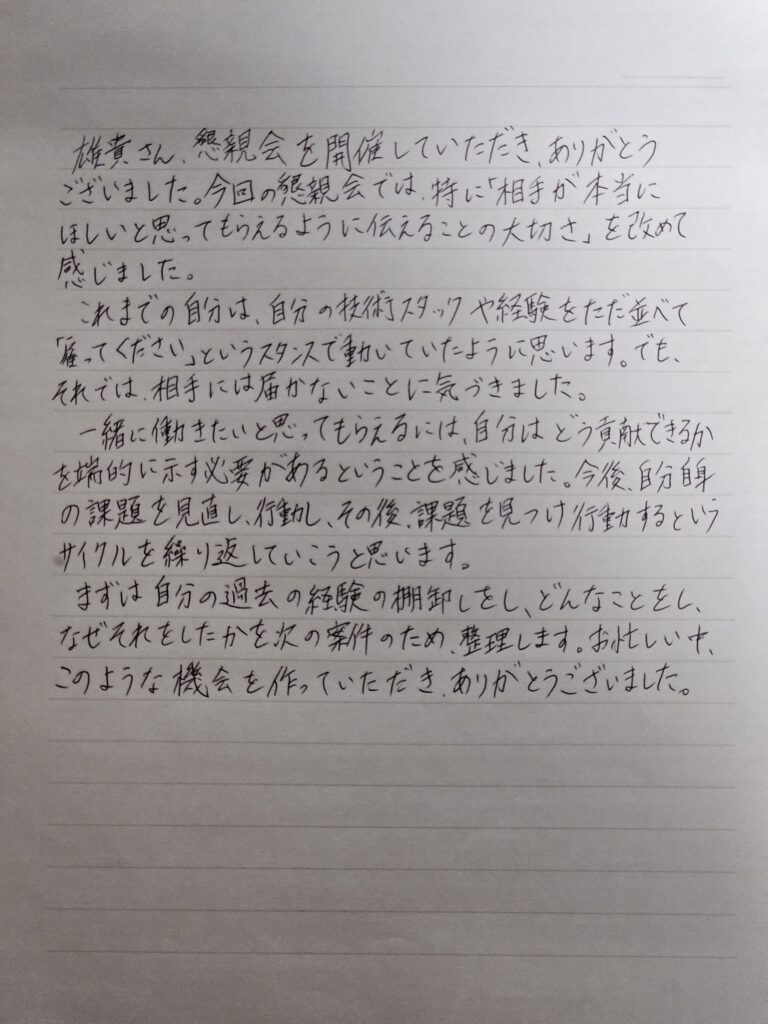 雄貴さん、懇親会を開催していただき、ありがとう
ございました。今回の懇親会では、特に「相手が本当に
ほしいと思ってもらえるように伝えることの大切さ」を改めて
感じました。
これまでの自分は、自分の技術スタックや経験をただ並べて
「雇ってください」というスタンスで動いていたように思います。でも、
それでは、相手には届かないことに気づきました。
一緒に働きたいと思ってもらえるには、自分はどう貢献できるか
を端的に示す必要があるということを感じました。今後、自分自身
の課題を見直し、行動し、その後、課題を見つけ行動するという
サイクルを繰り返していこうと思います。
まずは自分の過去の経験の棚卸しをし、どんなことをし、
なぜそれをしたかを次の案件のため、整理します。お忙しい中、
このような機会を作っていただき、ありがとうございました。